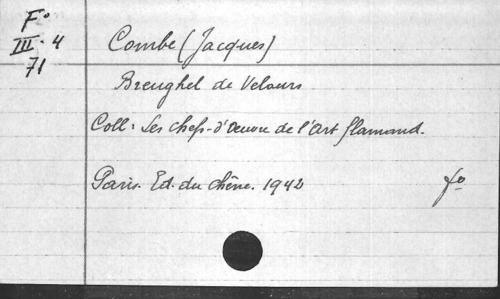 Fº
III. 4
71
Combe (Jacques)
Breughel de Velours
Coll: Les chefs-d'œuvre de l'Art flamand.
Paris. Ed. du chêne. 1942 fº